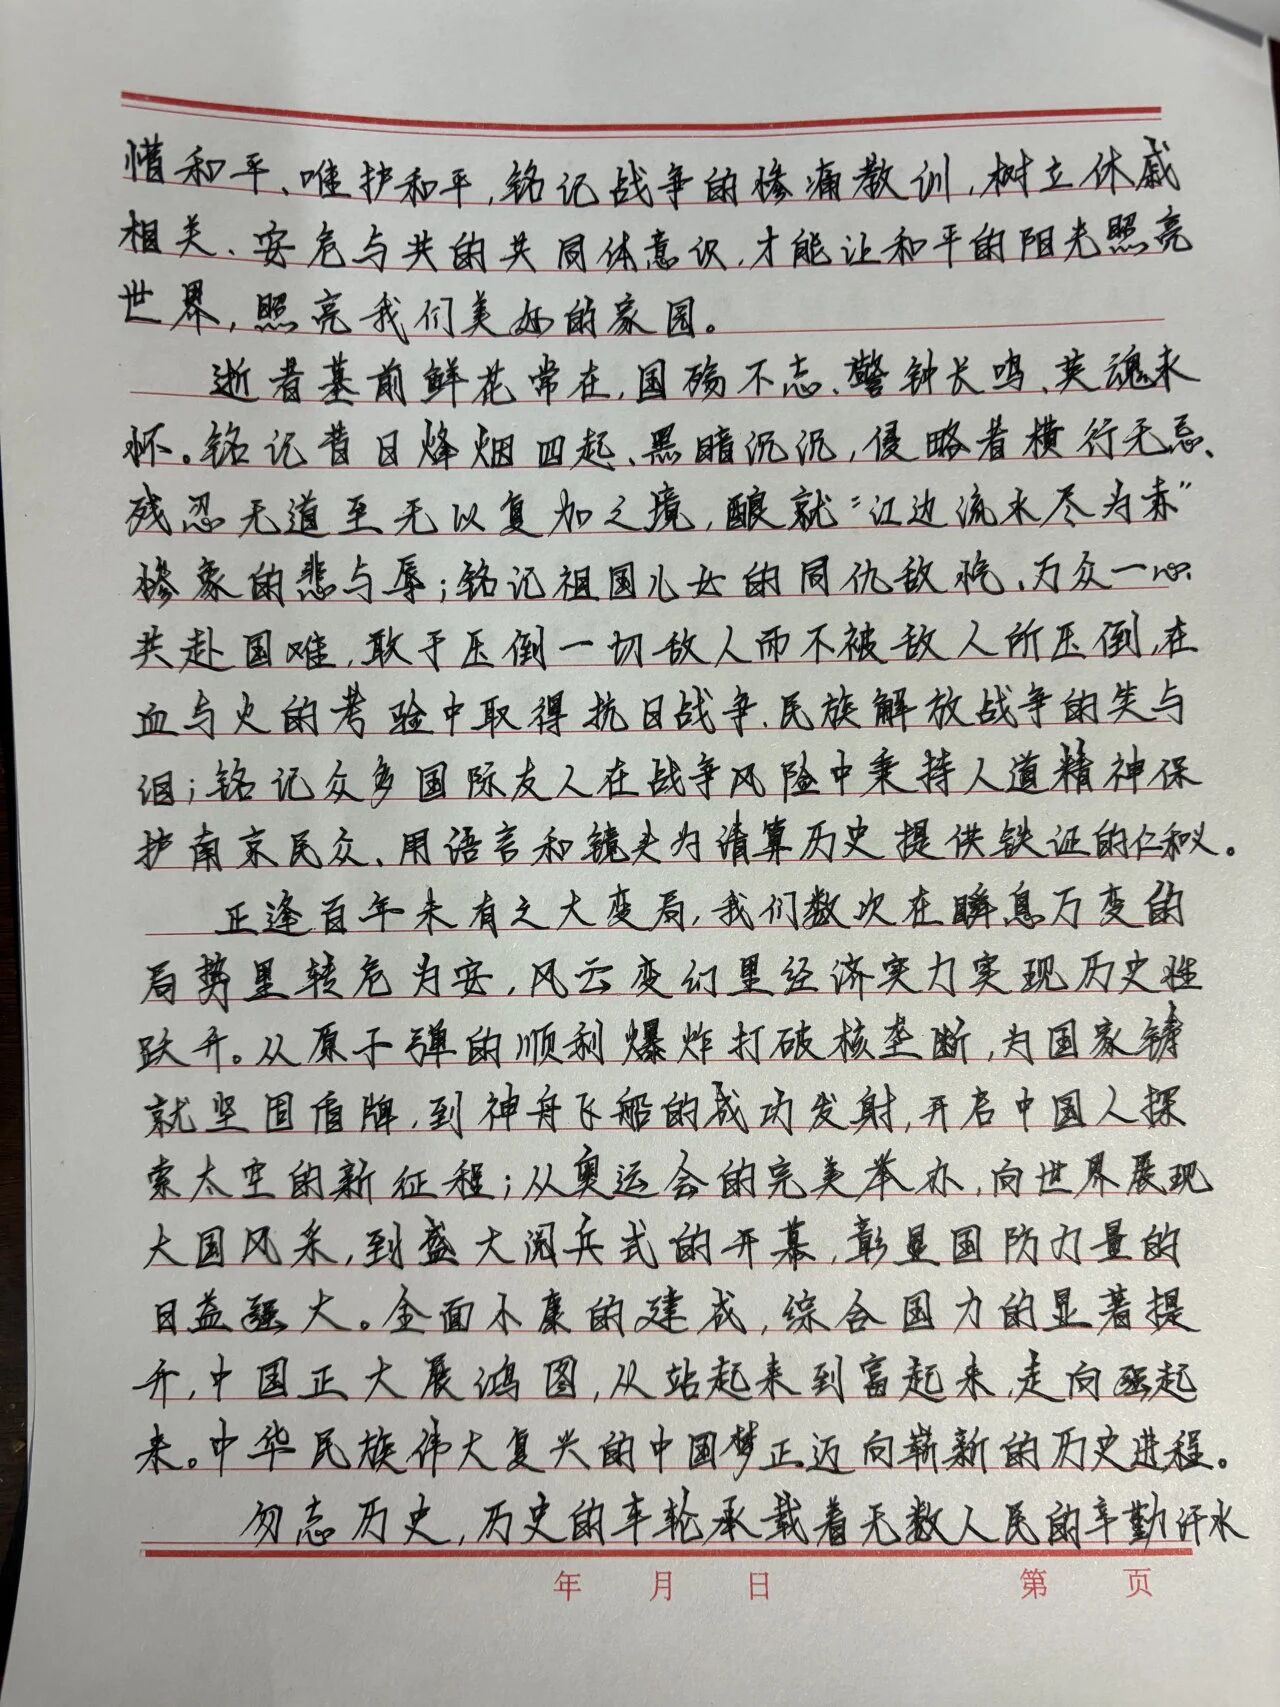 惜和平、唯护和平,铭记战争的惨痛教训,树立休戚
相关、安危与共的共同体意识,才能让和平的阳光照亮
世界,照亮我们美好的家园。
逝者墓前鲜花常在,国殇不忘、警钟长鸣、英魂永
怀。铭记昔日烽烟四起、黑暗沉沉,侵略者横行无忌、
残忍无道至无以复加之境,酿就“江边流水尽为赤”
惨象的悲与辱;铭记祖国儿女的同仇敌忾、万众一心、
共赴国难,敢于压倒一切敌人而不被敌人所压倒,在
血与火的考验中取得抗日战争、民族解放战争的笑与
泪;铭记众多国际友人在战争风险中秉持人道精神保
护南京民众、用语言和镜头为清算历史提供铁证的仁和义。
正逢百年未有之大变局,我们数次在瞬息万变的
局势里转危为安,风云变幻里经济实力实现历史性
跃升。从原子弹的顺利爆炸打破核垄断,为国家铸
就坚固盾牌,到神舟飞船的成功发射,开启中国人探
索太空的新征程;从奥运会的完美举办,向世界展现
大国风采,到盛大阅兵式的开幕,彰显国防力量的
日益强大。全面小康的建成,综合国力的显著提
升,中国正大展鸿图,从站起来到富起来,走向强起
来。中华民族伟大复兴的中国梦正迈向崭新的历史进程。
勿忘历史,历史的车轮承载着无数人民的辛勤汗水
年 月 日 第 页